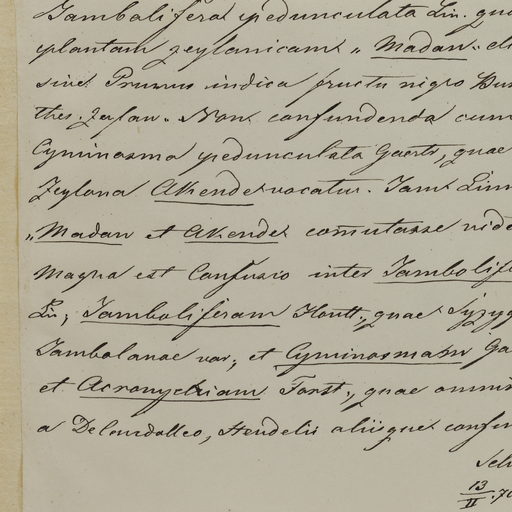 Jambolifera pedunculata Lin. qu
plantam zeylanicam "Madan" di
sive Prunus indica fructu nigro Bur
thes. Zeylan. Non confundenda cum
Cyminosma pedunculata Gaertn, quae
Zeylona Akende vocatur. Jam Linn
"Madan et Akende comutasse vide
Magna est Confusio inter Jambolife
Lin; Jamboliferam Houtt., quae Syzyg
Jambolanae var; et Cyminosmam Ga
et Acronychiam Forst., quae omni
a Decandolleo, Stendelii aliisque confu
13/II .70